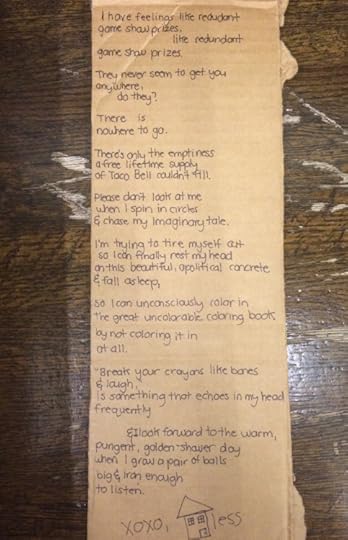 I have feelings like redudant
game show prizes.
like redundant
game show prizes.
They never seem to get you
anywhere,
do they?
There is
nowhere to go.
There's only the emptiness
a free lifetime supply
of Taco Bell couldn't fill.
Please don't look at me
when I spin in circles
& chase my imaginary tale.
I'm trying to tire myself out
so I can finally rest my head
on this beautiful, apolitical concrete
& fall asleep,
so I can unconsciously color in
the great uncolorable coloring book
by not coloring it in
at all.
"Break your crayons like bones
& laugh,
is something that echoes in my head
frequently
& I look forward to the warm,
pungent, golden-shower day
when I grow a pair of balls
big & iron enough
to listen.
xoxo, less